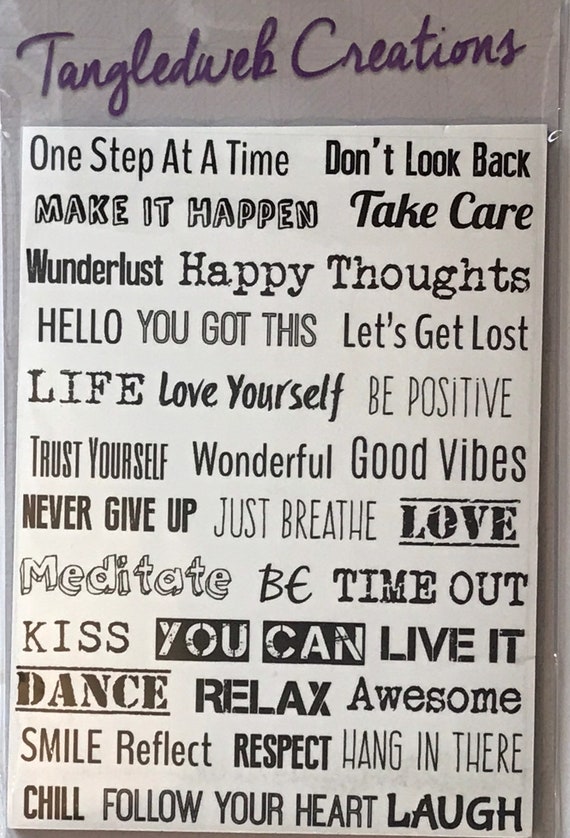 Tangledweb Creations
One Step At A Time Don't Look Back
MAKE IT HAPPEN Take Care
Wunderlust Happy Thoughts
HELLO YOU GOT THIS Let's Get Lost
LIFE Love Yourself BE POSiTiVE
TRUST YOURSELF Wonderful Good Vibes
NEVER GIVE UP JUST BREATHE LOVE
Meditate BE TIME OUT
KISS YOU CAN LIVE IT
DANCE RELAX Awesome
SMILE Reflect RESPECT HANG IN THERE
CHILL FOLLOW YOUR HEART LAUGH